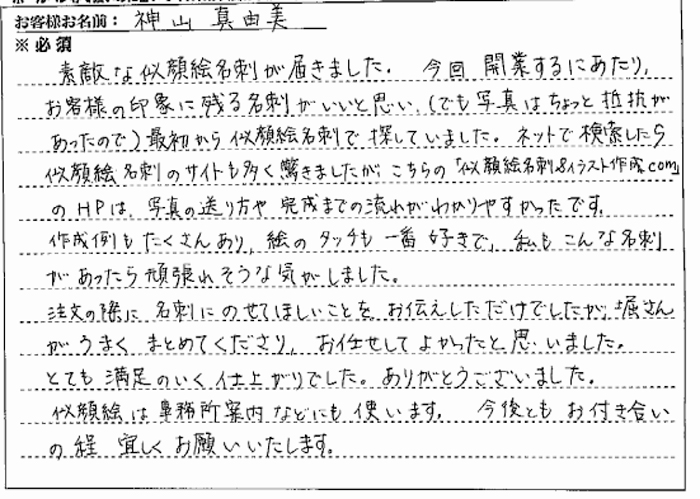 お客様お名前： 神山 真由美
※必須
素敵な似顔絵名刺が届きました。 今回 開業するにあたり、
お客様の印象に残る名刺がいいと思い、（でも写真はちょっと抵抗が
あったので）最初から似顔絵名刺で探していました。ネットで検索したら
似顔絵名刺のサイトも多く驚きましたが、こちらの「似顔絵名刺&イラスト作成.com」
のHPは、写真の送り方や完成までの流れがわかりやすかったです。
作成例もたくさんあり、絵のタッチも一番好きで、私もこんな名刺
があったら頑張れそうな気がしました。
注文の際に名刺にのせてほしいことをお伝えしただけでしたが、堀さん
がうまくまとめてくださり、お任せしてよかったと思いました。
とても満足のいく仕上がりでした。ありがとうございました。
似顔絵は事務所案内などにも使います。 今後ともお付き合い
の程 宜しくお願いいたします。